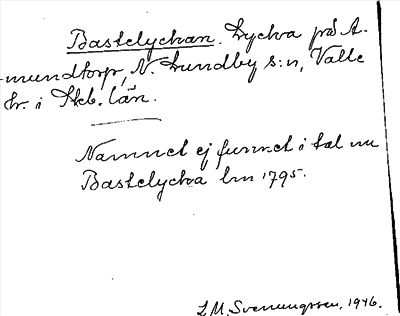 Bastelyckan. Lycka på A-
mundtorp, N. Lundby s:n, Valle
hr. i Skb. län.
Namnet ej funnet i tal nu
Bastelycka lm 1795.
L. M. Svenungsson, 1946.